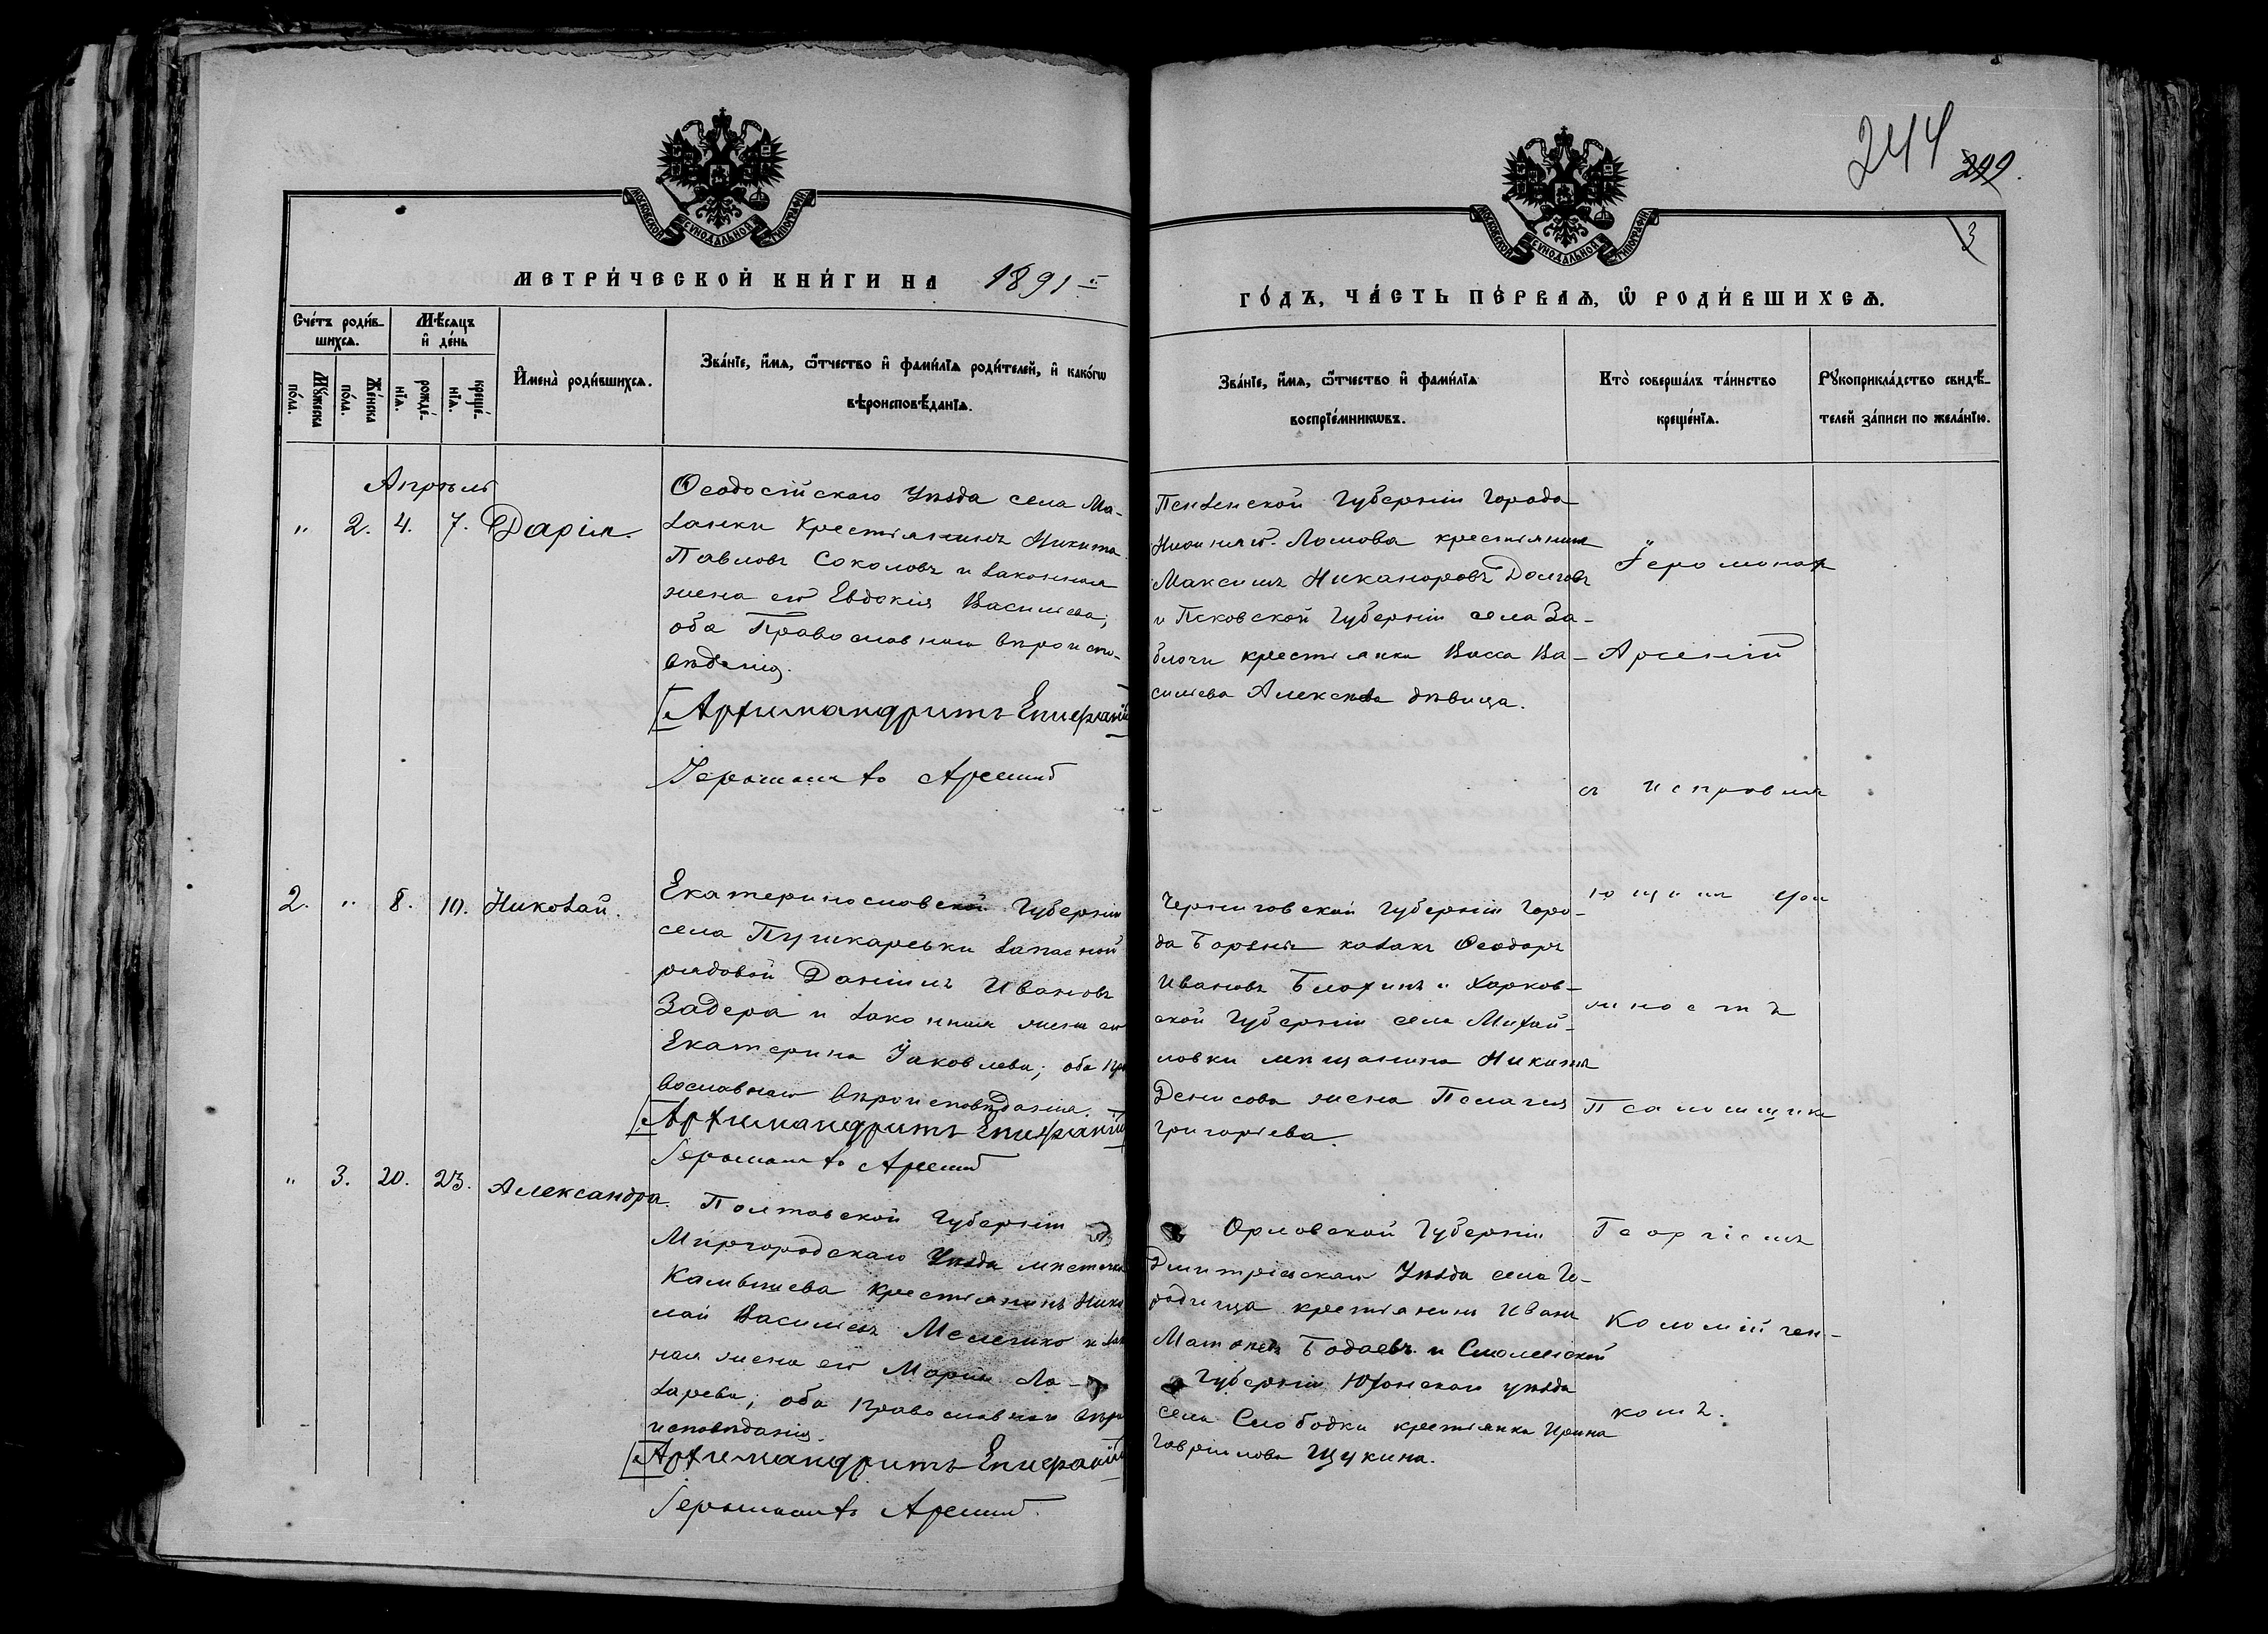 244 299.
3
МОСКОВСКОЙ СѴНОДАЛЬНОЙ ТИПОГРАФІИ
МОСКОВСКОЙ СѴНОДАЛЬНОЙ ТИПОГРАФІИ
МЕТРИ́ЧЕСКОЙ КНИ́ГИ НА 1891 й
ГО́ДЪ, ЧА́СТЬ ПЕ́РВАѦ, Ѿ РОДИ́ВШИХСѦ.
Сче́тъ роди́в-
шихсѧ.
Мꙋ́жеска
по́ла.
Же́нска
по́ла.
Мѣ́сѧцъ
и҆ де́нь
рожде́-
нїѧ.
креще́-
нїѧ.
И҆мена̀ роди́вшихсѧ.
Зва́нїе, и҆́мѧ, ѻ҆́тчество и҆ фами́лїѧ роди́телей, и҆ како́гѡ
вѣроисповѣ́данїѧ.
Зва́нїе, и҆́мѧ, ѻ҆́тчество и҆ фами́лїѧ
воспрїе́мникѡвъ.
Кто̀ соверша́лъ та́инство
креще́нїѧ.
Рꙋкоприкла́дство свидѣ́-
телей за́писи по жела́нїю.
Апрѣль
" 2. 4. 7. Дарія.
Ѳеодосійскаго Уѣзда села Ма-
занки крестьянинъ Никита
Павловъ Соколовъ и законная
жена его Евдокія Васильева;
оба Православнаго вѣроиспо-
вѣданія.
Архимандритъ Епифаній
Іеромонахъ Арсеній
Пензенской Губерніи города
Ломова крестьянинъ
Максимъ Никаноровъ Долговъ
и Псковской Губерніи села За-
блочи крестьянка Васса Ва-
сильева Алексѣева дѣвица.
Іеромонах
Арсеній
съ исправля
ющимъ дол
жность
Псаломщика
Георгіемъ
Коломійчен-
комъ.
2. " 8. 10. Николай.
Екатеринославской Губерніи
села Пушкаревки запасной
рядовой Даніилъ Ивановъ
Задера и законная жена его
Екатерина Іаковлева; оба пра
вославнаго вѣроисповѣданія.
Архимандритъ Епифаній
Іеромонахъ Арсеній
Черниговской Губерніи Горо-
да Борзны козакъ Ѳеодоръ
Ивановъ Блохинъ и Харков-
ской Губерніи села Михай-
ловки мѣщанина
Денисова жена Пелагія
Григорьева.
" 3. 20. 23. Александра.
Полтавской Губерніи
Миргородскаго Уѣзда мѣстечка
Камышева крестьянинъ Нико
лай Васильевъ Мелешко и зак
ная жена его Марія Ла-
зарева; оба православнаго вѣро
исповѣданія.
Архимандритъ Епифаній
Іеромонахъ Арсеній.
Орловской Губерніи
Дмитріевскаго Уѣзда села Го-
родища крестьянинъ Иванъ
Бодаевъ и Смоленской
Губерніи Юхонскаго уѣзда
села Слободки крестьянка Ирина
Гавріилова Щукина.